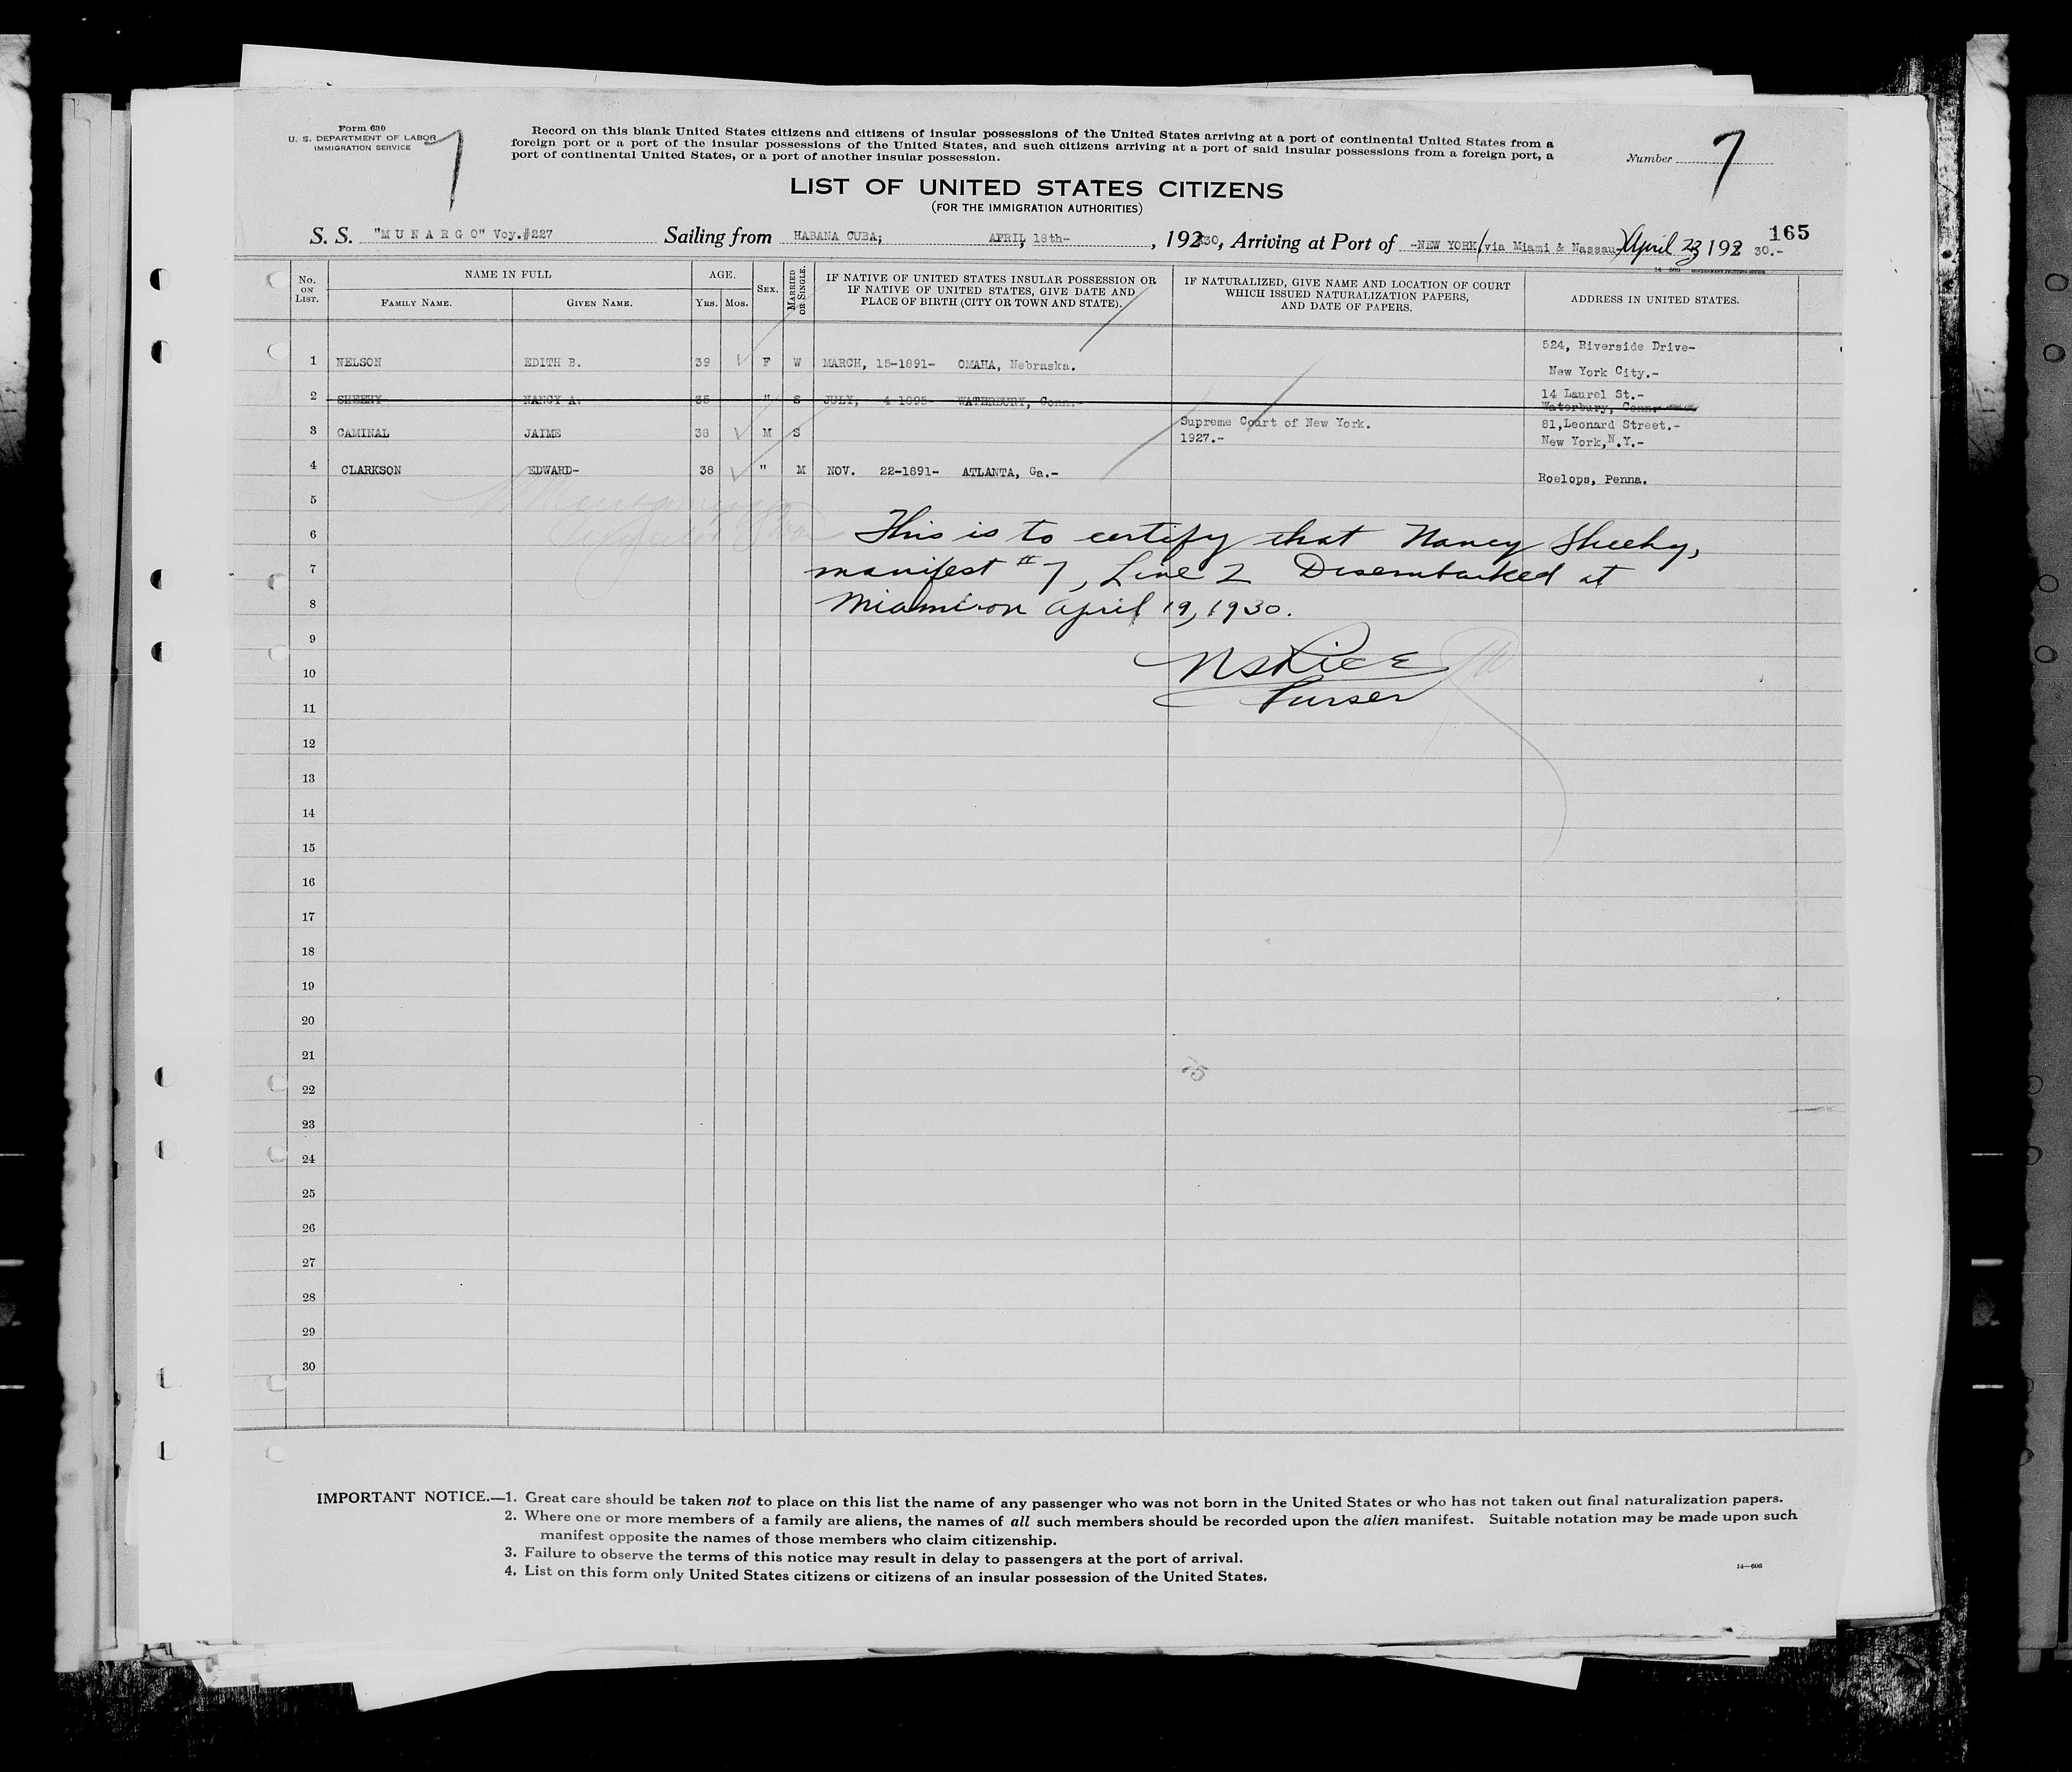 Form 630
U. S. DEPARTMENT OF LABOR
IMMIGRATION SERVICE
7
Record on this blank United States citizens and citizens of insular possessions of the United States arriving at a port of continental United States from a
foreign port or a port of the insular possessions of the United States, and such citizens arriving at a port of said insular possessions from a foreign port, a
port of continental United States, or a port of another insular possession.
Number 7
LIST OF UNITED STATES CITIZENS
(FOR THE IMMIGRATION AUTHORITIES)
165
S. S. "M U N A R G O" Voy.#227 Sailing from HABANA CUBA; APRIL, 18th- , 19230, Arriving at Port of -NEW YORK (via Miami & Nassau) April 23 192 30.-
No. ON LIST. NAME IN FULL AGE. SEX. MARRIED OR SINGLE. IF NATIVE OF UNITED STATES INSULAR POSSESSION OR IF NATIVE OF UNITED STATES, GIVE DATE AND PLACE OF BIRTH (CITY OR TOWN AND STATE). IF NATURALIZED, GIVE NAME AND LOCATION OF COURT WHICH ISSUED NATURALIZATION PAPERS, AND DATE OF PAPERS. ADDRESS IN UNITED STATES.
FAMILY NAME. GIVEN NAME. YRS. MOS.
524, Riverside Drive-
1 NELSON EDITH B. 39 F W MARCH, 15-1891- OMAHA, Nebraska. New York City.-
2 SHEEHY NANCY A. 35 " S JULY, 4-1895- WATERBURY, Conn.- 14 Laurel St.-
Waterbury, Conn.
3 CAMINAL JAIME 38 M S Supreme Court of New York. 81,Leonard Street.-
1927.- New York,N.Y.-
4 CLARKSON EDWARD- 38 " M NOV. 22-1891- ATLANTA, Ga.- Roelops, Penna.
5
6 This is to certify that Nancy Sheehy,
7 manifest #7, Line 2 Disembarked at
8 Miami on April 19, 1930.
9
10 NSRice
11 Purser
12
13
14
15
16
17
18
19
20
21
75
22
23
24
25
26
27
28
29
30
IMPORTANT NOTICE.—1. Great care should be taken not to place on this list the name of any passenger who was not born in the United States or who has not taken out final naturalization papers.
2. Where one or more members of a family are aliens, the names of all such members should be recorded upon the alien manifest. Suitable notation may be made upon such
manifest opposite the names of those members who claim citizenship.
3. Failure to observe the terms of this notice may result in delay to passengers at the port of arrival.
4. List on this form only United States citizens or citizens of an insular possession of the United States.
14—606